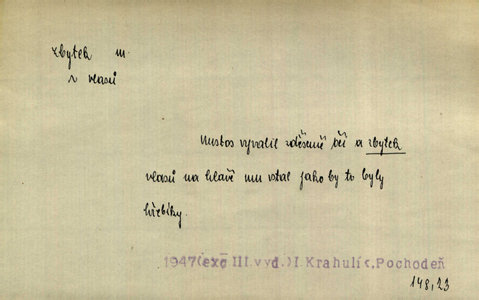 zbytek m.
z vlasů
Mistos vyvalil zděšeně oči a zbytek
vlasů na hlavě mu vstal jako by to byly
hřebíky.
1947(exc III.vyd.)I.Krahulík,Pochodeň
148,23